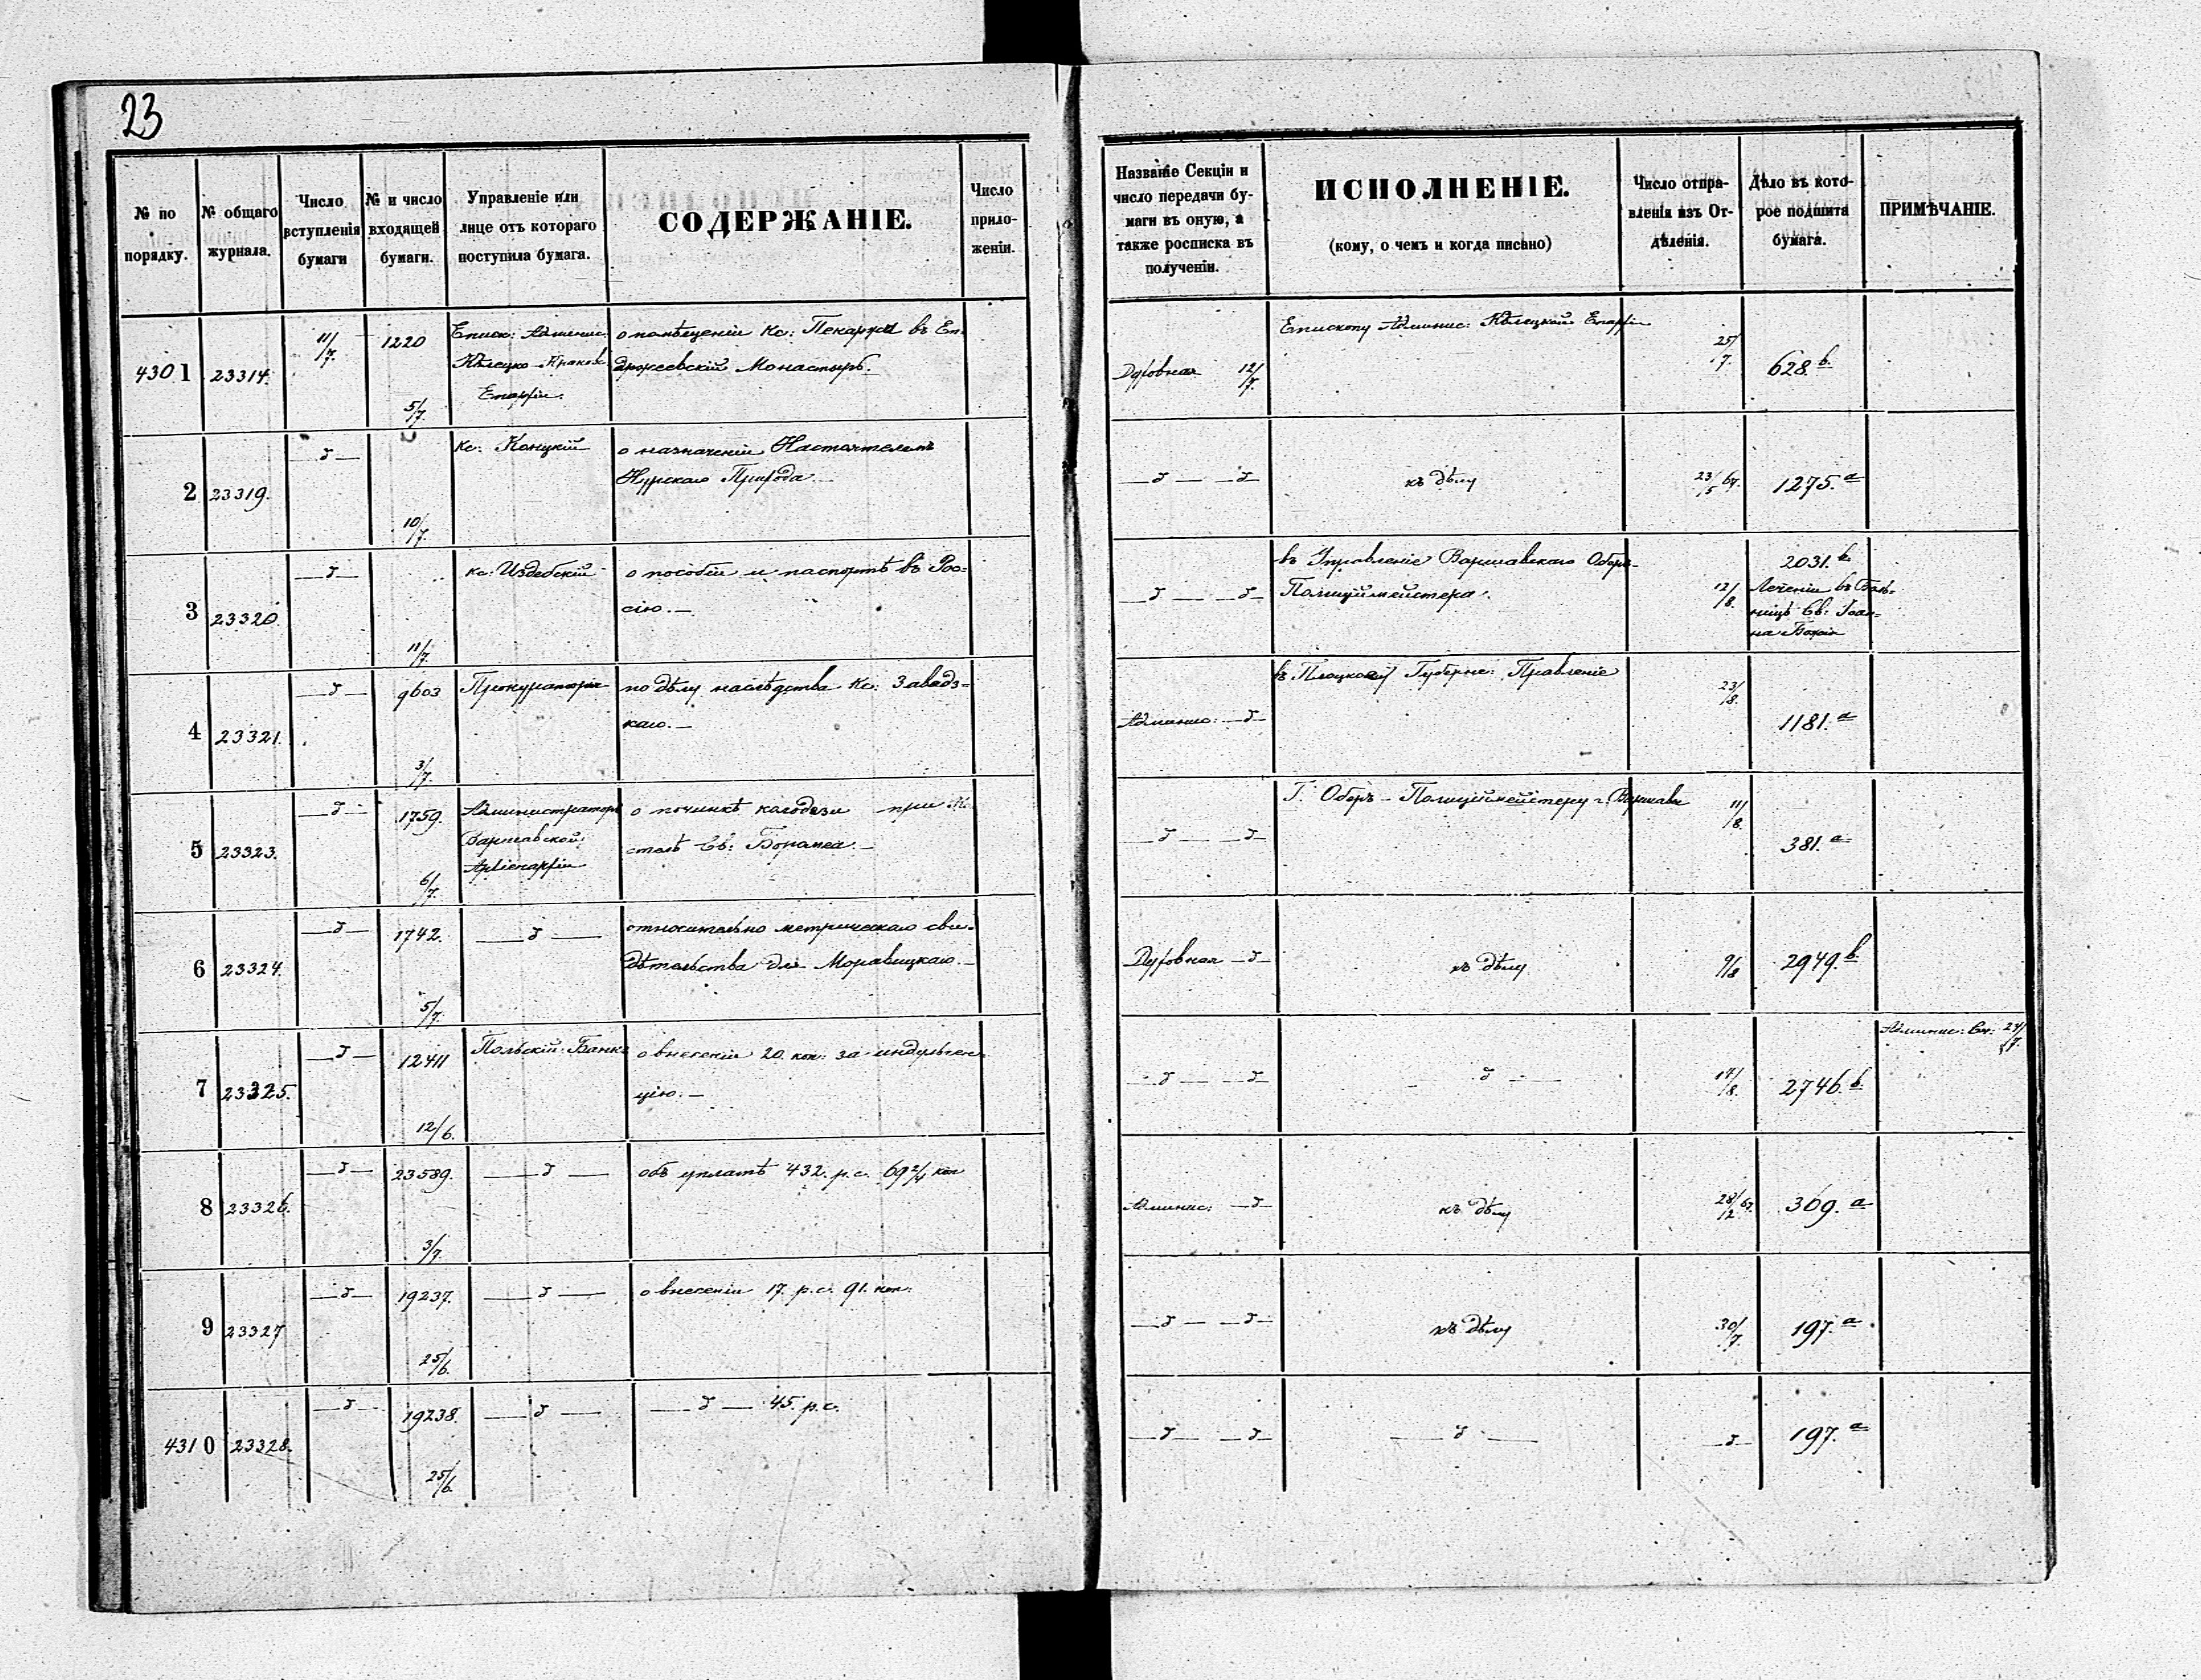 23
№ по порядку.
№ общаго журнала.
Число вступленія бумаги
№ и число входящей бумаги.
Управленіе или лице отъ котораго поступила бумага.
СОДЕРЖАНІЕ.
Число приложеній.
Названіе Секціи и число передачи бумаги въ оную, а также росписка въ полученіи.
ИСПОЛНЕНІЕ.
(кому, о чемъ и когда писано)
Число отправленія изъ Отдѣленія.
Дѣло въ которое подшита бумага.
ПРИМѢЧАНІЕ.
4301 23314. 11/7. 1220 5/7.
Еписк: Админис:
Кѣлецко-Краков:
Епархіи.
о помѣщеніи Кс: Пекаржа въ Ен-
држеевскій Монастырь.
Духовная 12/7.
Епископу Админис: Кѣлецкой Епархіи
25/7. 628.b
2 23319. —д— 10/7.
Кс: Концкій
о назначеніи Настоятелемъ
Нурскаго Прихода.—
—д— —д—
къ дѣлу
23/5 67. 1275.a
3 23320. —д— 11/7.
кс: Издебскій
о пособіи и паспортѣ въ Рос=
сію.—
—д— —д—
въ Управленіе Варшавскаго Оберъ-
Полиціймейстера.
12/8. 2031.b
Леченіи въ Боль=
ницѣ Св: Іоан=
на Божія
4 23321. —д— 9603 3/7.
Прокураторія
по дѣлу наслѣдства Кс: Завадз=
каго.—
Админис: —д—
въ Плоцкое Губерн: Правленіе
23/8. 1181.a
5 23323. —д— 1759. 6/7.
Администраторъ
Варшавской
Архіепархіи
о починкѣ колодези при
Св: Боромея.—
—д— —д—
Г. Оберъ-Полиціймейстеру г. Варшавы
11/8. 381.a
6 23324. —д— 1742. 5/7.
—д—
относительно метрическаго сви-
дѣтельства для Моравицкаго.—
Духовная —д—
къ дѣлу
9/8 2949.b
7 23325. —д— 12411 12/6.
Польскій Банкъ
о внесеніи 20 коп: за индульген-
цію.—
—д— —д—
—д—
14/8. 2746.b
8 23326. —д— 23589. 3/7.
—д—
объ уплатѣ 432. р.с. 69 2/4 коп
Админис: —д—
къ дѣлу
28/12 67. 369.a
9 23327 —д— 19237. 25/6.
—д—
о внесеніи 17. р.с. 91. коп.
—д— —д—
къ дѣлу
30/7. 197.a
4310 23328. —д— 19238. 25/6.
—д—
—д— 45. р.с.
—д— —д—
—д—
—д— 197.a